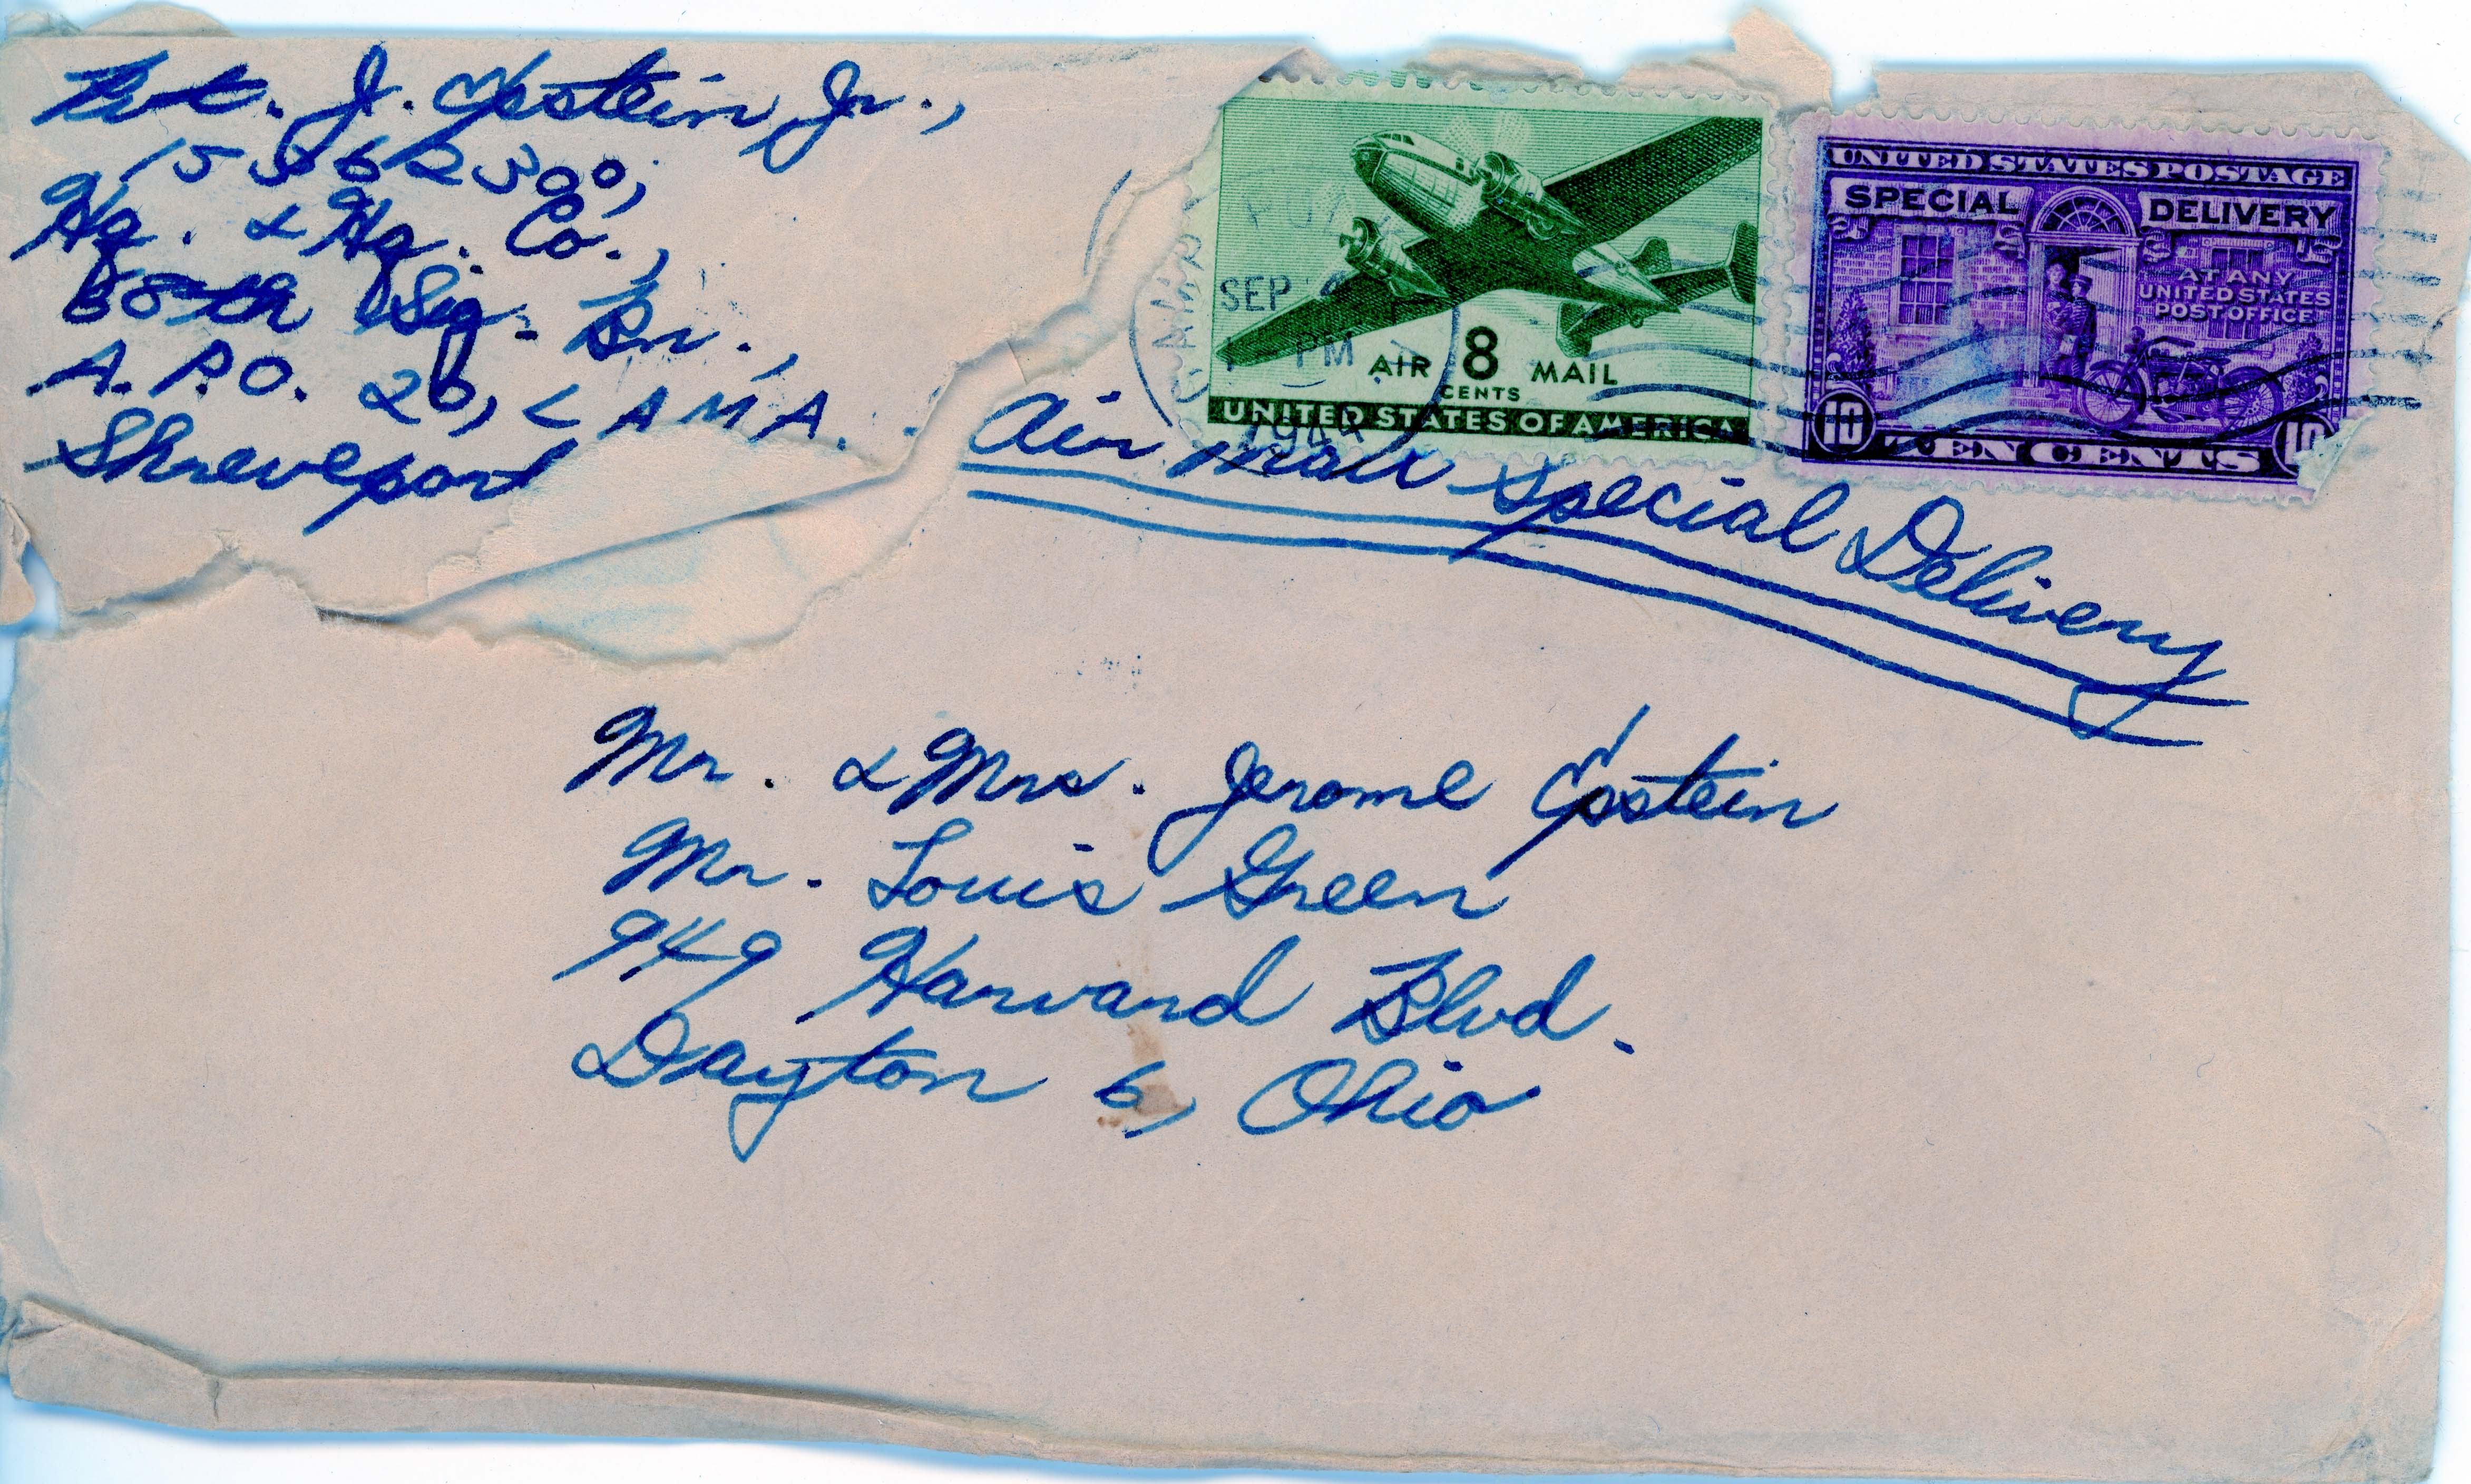 Pvt. J. Epstein Jr.,
15362300,
Hq. & Hq. Co.,
58th Sig. Bn.,
A.P.O. 20, LAMA.
Shreveport
SEP
PM
1944
AIR 8 MAIL
CENTS
UNITED STATES OF AMERICA
UNITED STATES POSTAGE
SPECIAL DELIVERY
AT ANY
UNITED STATES
POST OFFICE
10 TEN CENTS 10
Air Mail Special Delivery
Mr. & Mrs. Jerome Epstein
Mr. Louis Green
949 Harvard Blvd.
Dayton 6, Ohio